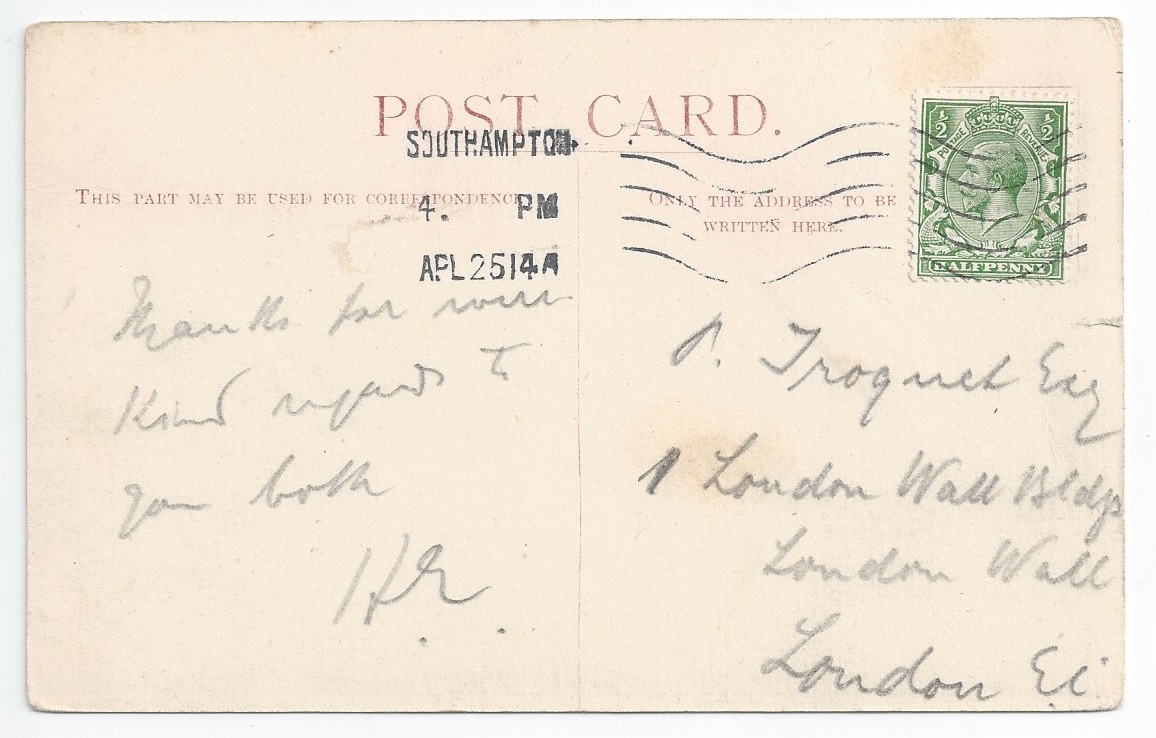 POST CARD.
SOUTHAMPTON
4. PM
APL 25 14
THIS PART MAY BE USED FOR CORRESPONDENCE
ONLY THE ADDRESS TO BE
WRITTEN HERE.
½ ½
POSTAGE REVENUE
HALFPENNY
Thanks for
Kind regards to
you both
HE
P. Troquet Esq
1 London Wall Bldgs
London Wall
London EC